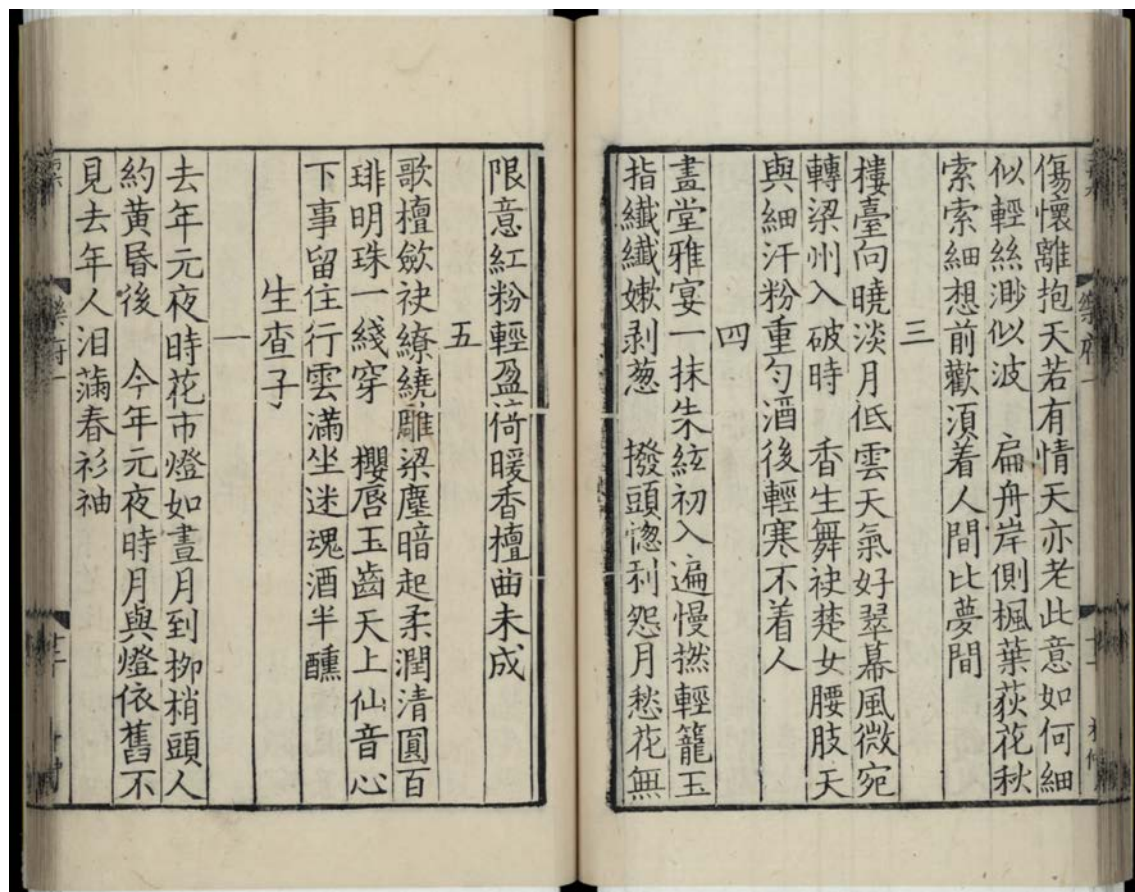 傷懷離抱天若有情天亦老此意如何細
似輕絲渺似波　扁舟岸側楓葉荻花秋
索索細想前歡須着人間比夢間
三
樓臺向曉淡月低雲天氣好翠幕風微宛
轉梁州入破時　香生舞袂楚女腰肢天
與細汗粉重勻酒後輕寒不着人
四
畫堂雅宴一抹朱絃初入遍慢撚輕籠玉
指纖纖嫩剥葱　撥頭惚利怨月愁花無
限意紅粉輕盈倚暖香檀曲未成
五
歌檀歛袂繚繞雕梁塵暗起柔潤清圓百
琲明珠一綫穿　櫻唇玉齒天上仙音心
下事留住行雲滿坐迷魂酒半醺
生查子
一
去年元夜時花市燈如晝月到栁梢頭人
約黄昏後　今年元夜時月與燈依舊不
見去年人泪滿春衫袖